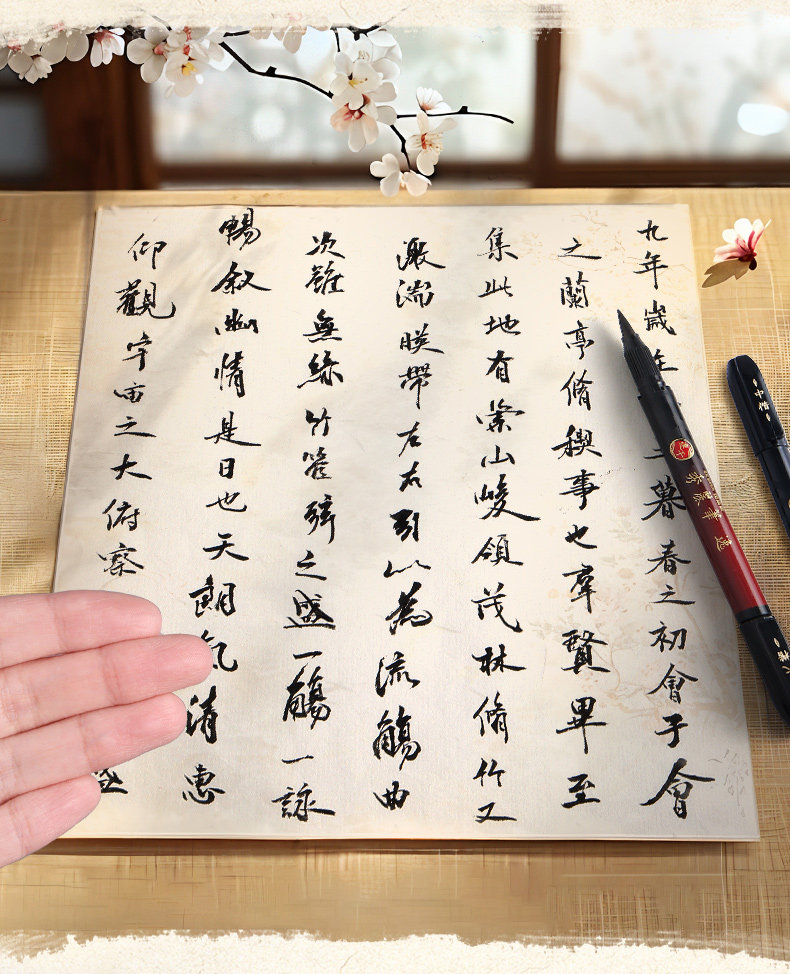 九年歲在暮春之初會于會
之蘭亭脩稧事也羣賢畢至
集此地有崇山峻領茂林脩竹又
激湍暎帶左右引以為流觴曲
次雖無絲竹管弦之盛一觴一詠
暢敘幽情是日也天朗氣清惠
仰觀宇宙之大俯察
小楷